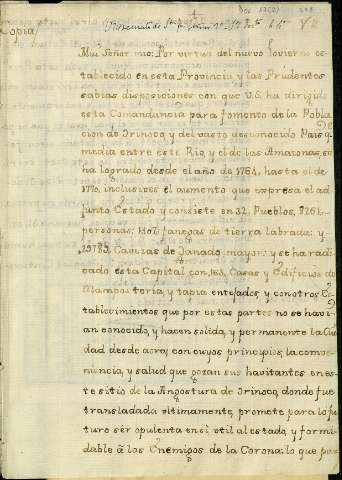 opia
Mui Señor mio: Por virtud del nuevo Govierno es-
tablecido en esta Provincia y las Prudentes
sabias disposiciones con que V.S. ha dirigido
esta Comandancia para fomento de la Pobla
cion de Orinoco y del vasto desconocido Pais q.e
media entre este Rio, y el de las Amazonas, se
ha logrado desde el año de 1764, hasta el de
1770, inclusives el aumento que expresa el ad
junto Estado y consiste en 32, Pueblos,
personas; fanegas de tierra labrada; y
Cavezas de Ganado mayor; y se ha radi
cado esta Capital con, 163, Casas y Edificios de
Mamposteria, y tapia entejados, y con otros Es-
tablecimientos que por estas partes no se havi-
an conocido, y hacen solida, y permanente la Ciu
dad desde aora, con cuyos principios, la conve-
niencia, y salud que gozan sus havitantes en es-
te sitio de la Angostura de Orinoco, donde fue
transladada ultimamente, promete para lo fu-
turo ser opulenta en si util al estado, y formi-
dable â los Enemigos de la Corona: lo que par